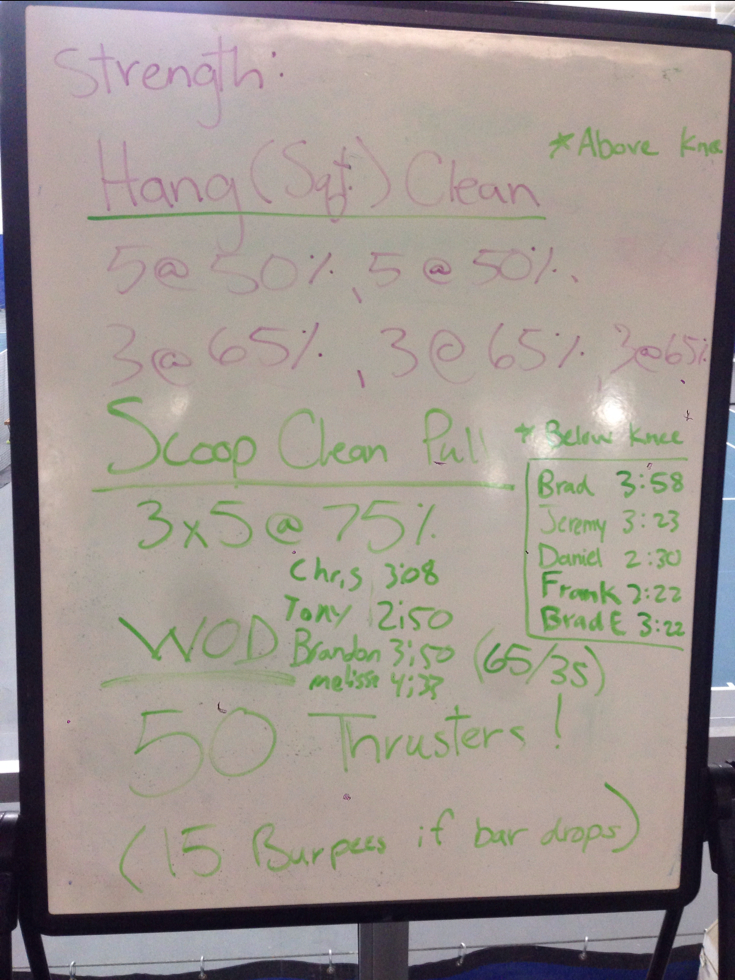 Strength:
* Above Knee
Hang (Sqt.) Clean
5 @ 50%, 5 @ 50%.
3 @ 65%, 3 @ 65%, 3 @ 65%
Scoop Clean Pull
* Below Knee
3 x 5 @ 75%
Brad 3:58
Jeremy 3:23
Daniel 2:30
Frank 2:22
Brad E 3:22
Chris 3:08
Tony 2:50
Brandon 3:50
melissa
WOD
(65/35)
50 Thrusters!
(15 Burpees if bar drops)